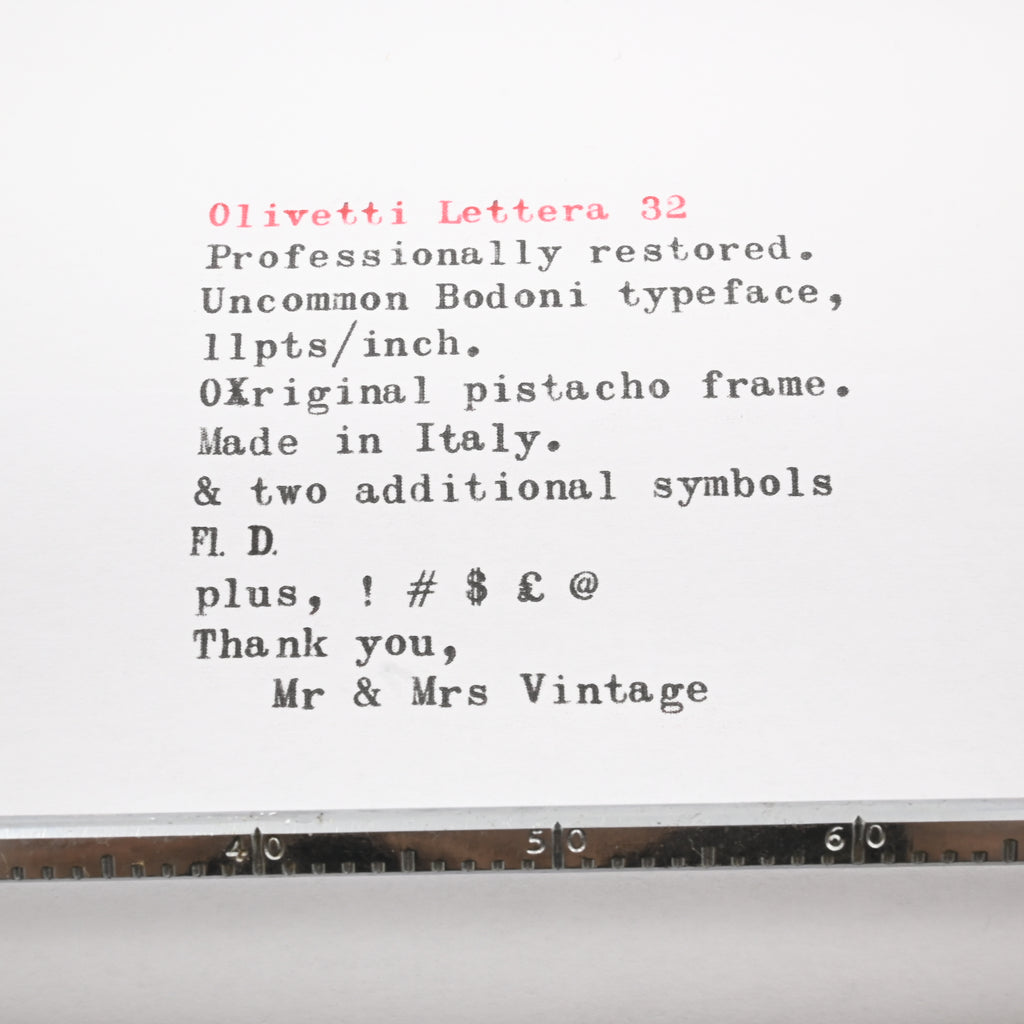 Olivetti Lettera 32
Professionally restored.
Uncommon Bodoni typeface,
11pts/inch.
OXriginal pistacho frame.
Made in Italy.
& two additional symbols
Fl. D.
plus, ! # $ £ @
Thank you,
Mr & Mrs Vintage
40 50 60